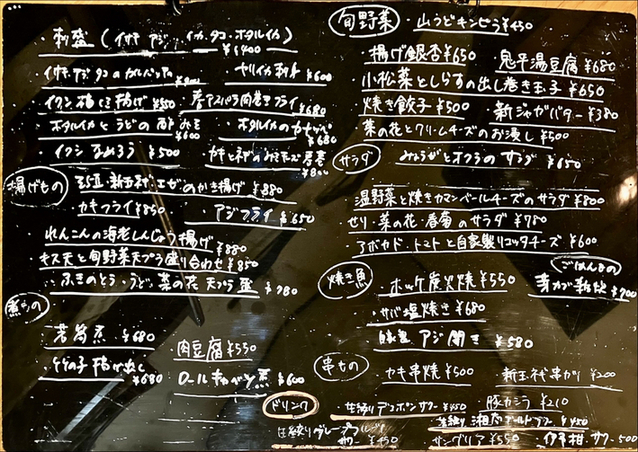 ・刺盛 (イサキ アジ イカ タコ ホタルイカ)
¥1400
・イサキ アジ タコ のカルパッチョ
・ヤリイカ刺身 ¥600
・イワシ梅しそ揚げ ¥550
・アスパラ肉巻きフライ ¥680
・ホタルイカとうどの酢みそ ¥600
・ホタルイカの ¥680
・イワシなめろう ¥500
・カキとネギの ¥800
揚げもの
新玉ネギ のかき揚げ ¥880
・カキフライ ¥850
・アジフライ ¥650
・れんこんの海老しんじょう揚げ ¥880
・キス天と旬野菜天プラ盛り合わせ ¥850
・ふきのとう・うど・菜の花 天プラ盛 ¥780
煮もの
若筍煮 ¥680
・肉豆腐 ¥550
・竹の子 ¥680
・ロールキャベツ煮 ¥600
旬野菜
・山うどキンピラ ¥450
・揚げ銀杏 ¥650
・鬼平湯豆腐 ¥680
・小松菜としらすの出し巻き玉子 ¥650
・焼き餃子 ¥500
・新ジャガバター ¥380
・菜の花とクリームチーズのお浸し ¥500
サラダ
・みょうがとオクラの サラダ ¥650
・温野菜と焼きカマンベールチーズのサラダ ¥800
・せり・菜の花・春菊のサラダ ¥780
・アボカド・トマトと自家製リコッタチーズ ¥600
焼き魚
・ホッケ炭火焼 ¥550
・サバ塩焼き ¥680
アジ開き ¥580
ごはんもの
¥700
串もの
・カキ串焼 ¥500
・新玉ネギ串カツ ¥200
・豚カシラ ¥210
ドリンク
・生絞りデコポンサワー ¥450
・生絞り湘南ゴールドサワー ¥450
・生絞りグレープフルーツサワー ¥450
・サングリア ¥550
・伊予柑サワー 500